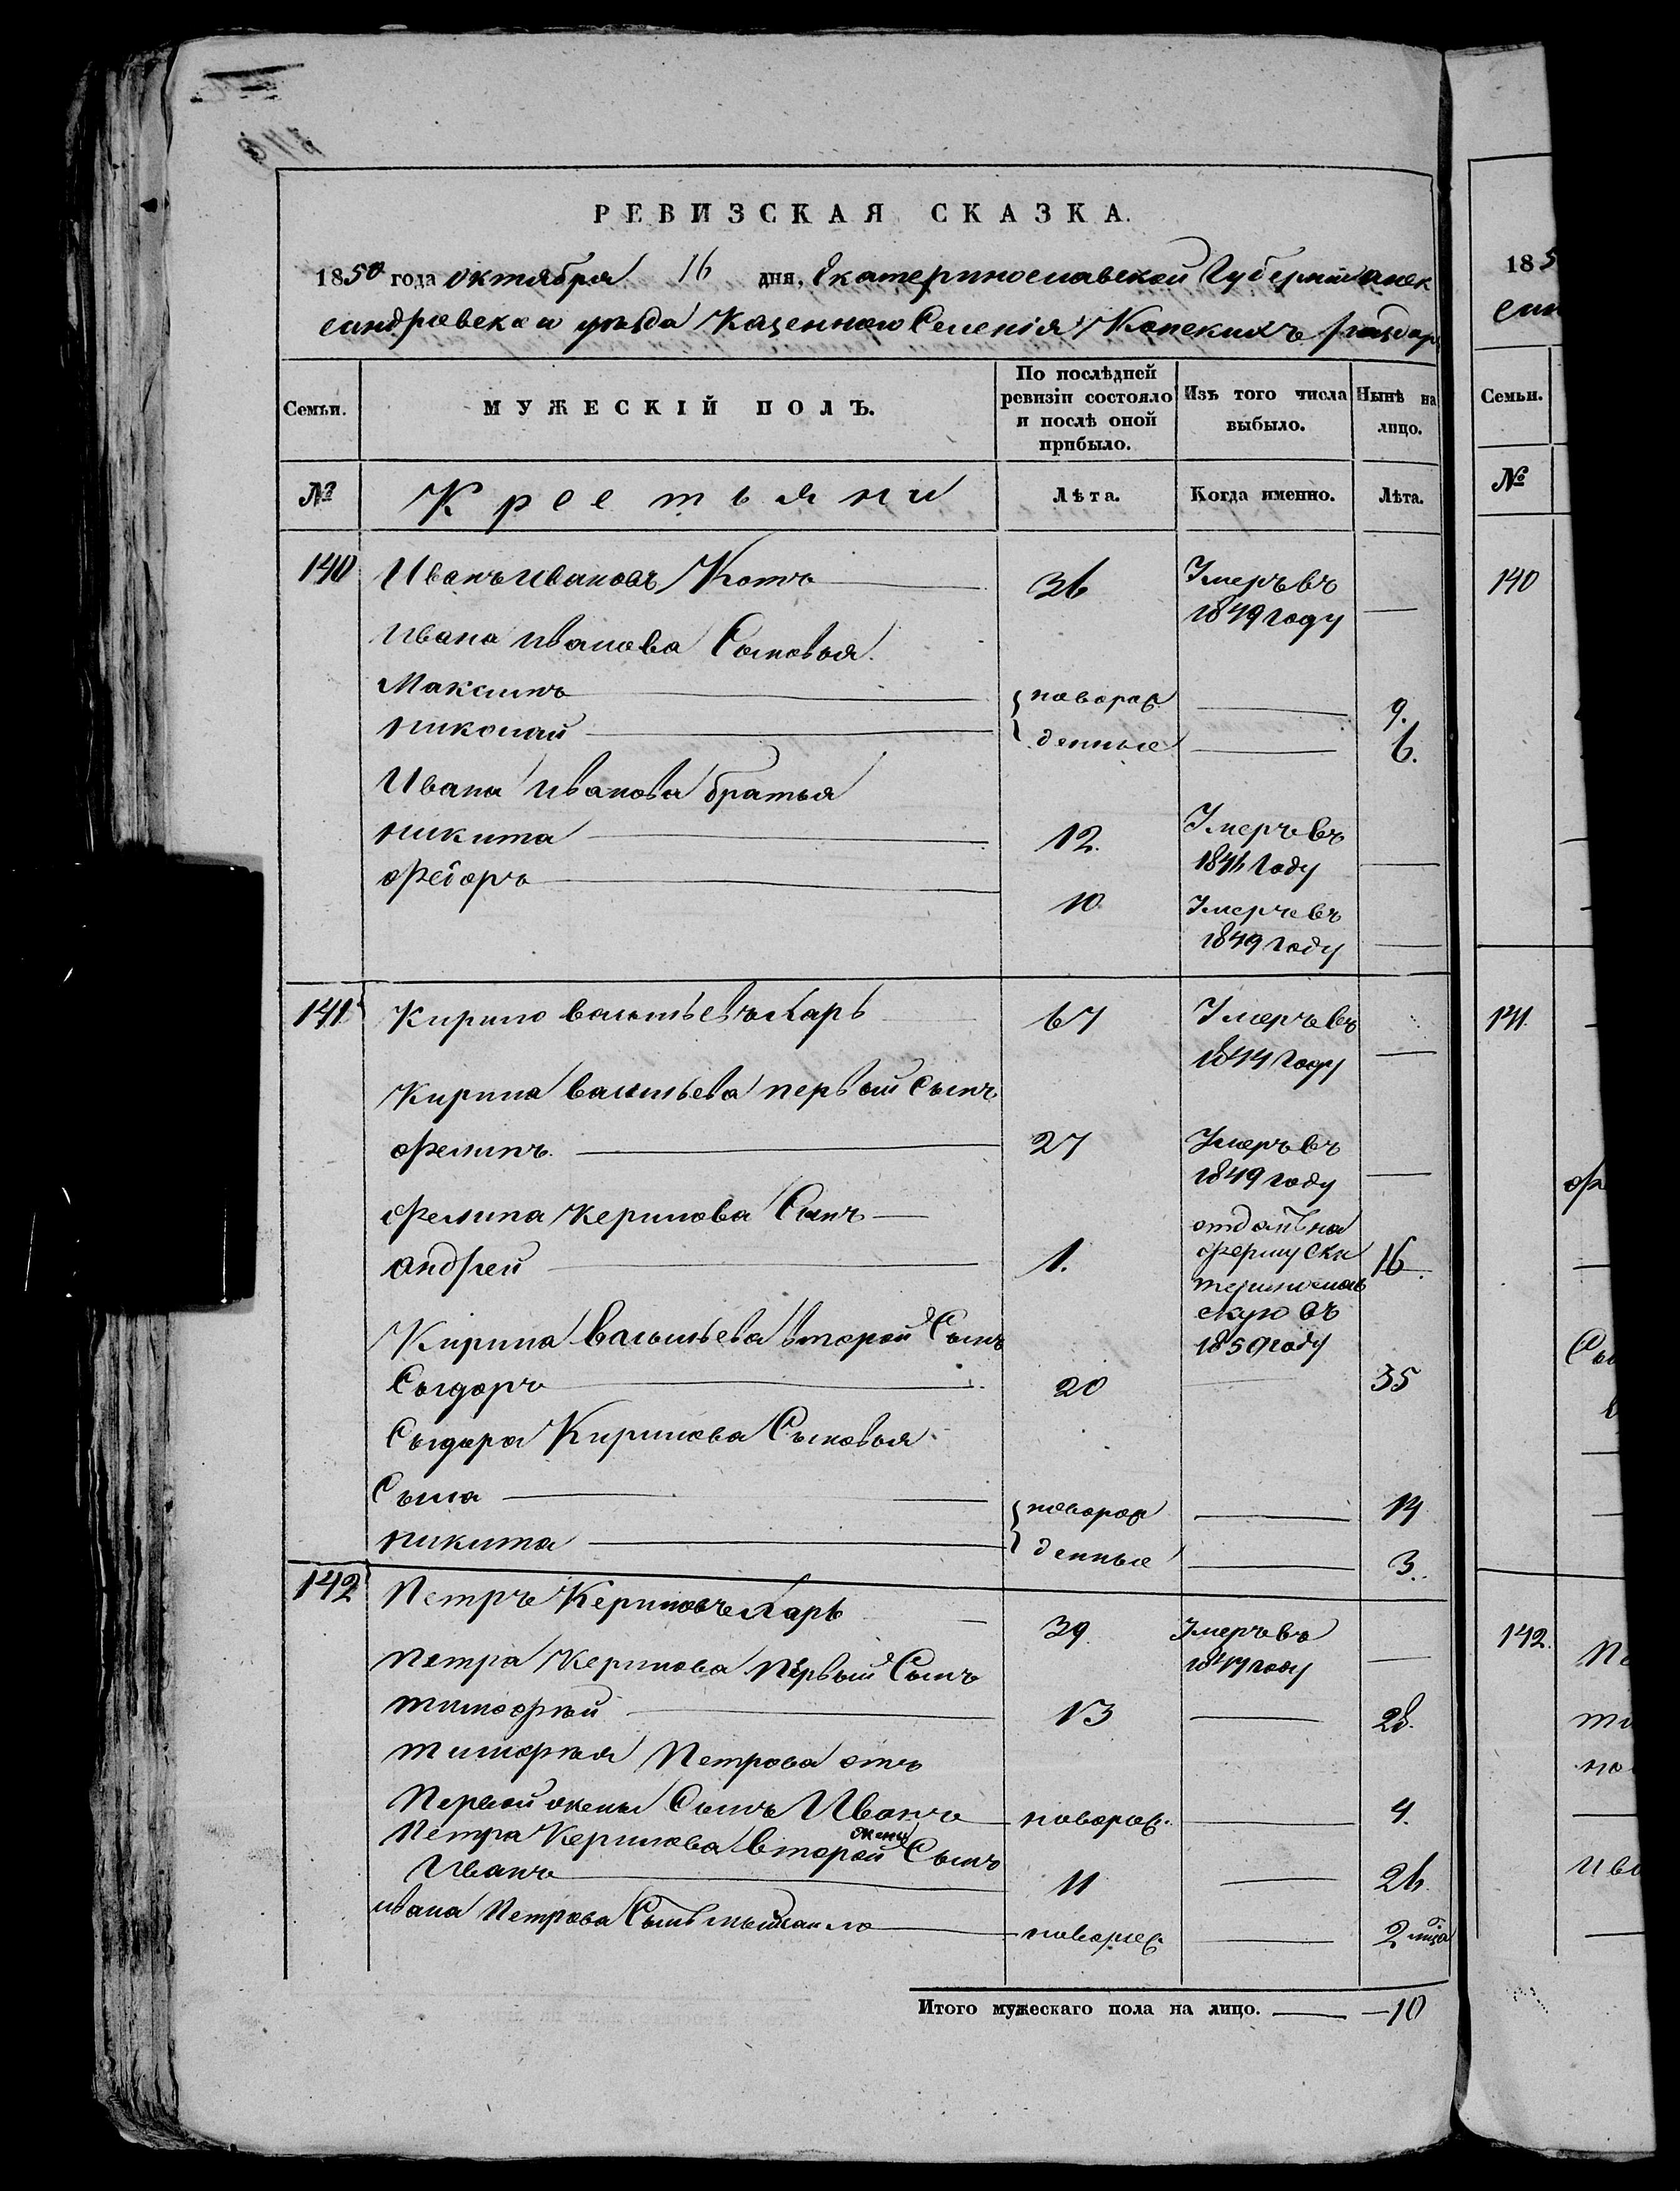 РЕВИЗСКАЯ СКАЗКА.
1850 года октября 16 дня, Екатеринославской Губернии Алек
сандровскаго уезда Казеннаго Селенія Конскихъ Раздор
Семьи. МУЖЕСКІЙ ПОЛЪ. По послѣдней ревизіи состояло и послѣ оной прибыло. Изъ того числа выбыло. Нынѣ на лицо.
№ Крестьяни Лѣта. Когда именно. Лѣта.
140 Иванъ Ивановъ Котъ 36 Умеръ въ 1849 году —
Ивана Иванова Сыновья.
Максимъ новорож — 9.
Николай денные — 6.
Ивана Иванова братья
Никита 12. Умеръ въ 1846 Году —
Федоръ 10 Умеръ въ 1849 Году —
141 Кирило Васильевъ Царь 67 Умеръ въ 1844 Году —
Кирила Васильева первый Сынъ
Филипъ. 27 Умеръ въ 1849 году —
Филипа Керилова Сынъ —
Андрей 1. отданъ на ферму Ека териносла скую въ 1850 году 16.
Кирила Васильева второй Сынъ
Сыдоръ 20 — 35
Сыдора Кирилова Сыновья
Сыла новорож — 14
Никита денные — 3.
142 Петръ Кериловъ Царь 39. Умеръ въ 1847 году —
Петра Керилова Первый Сынъ
Тимофей 13 — 28.
Тимофея Петрова отъ
Первой жены Сынъ Иванъ новорож. — 4.
Петра Керилова второй жены Сынъ
Иванъ 11 — 26
Ивана Петрова Сынъ Михайло новорож. — 2
Итого мужескаго пола на лицо. — 10
185
Семьи.
№
140
141.
142.